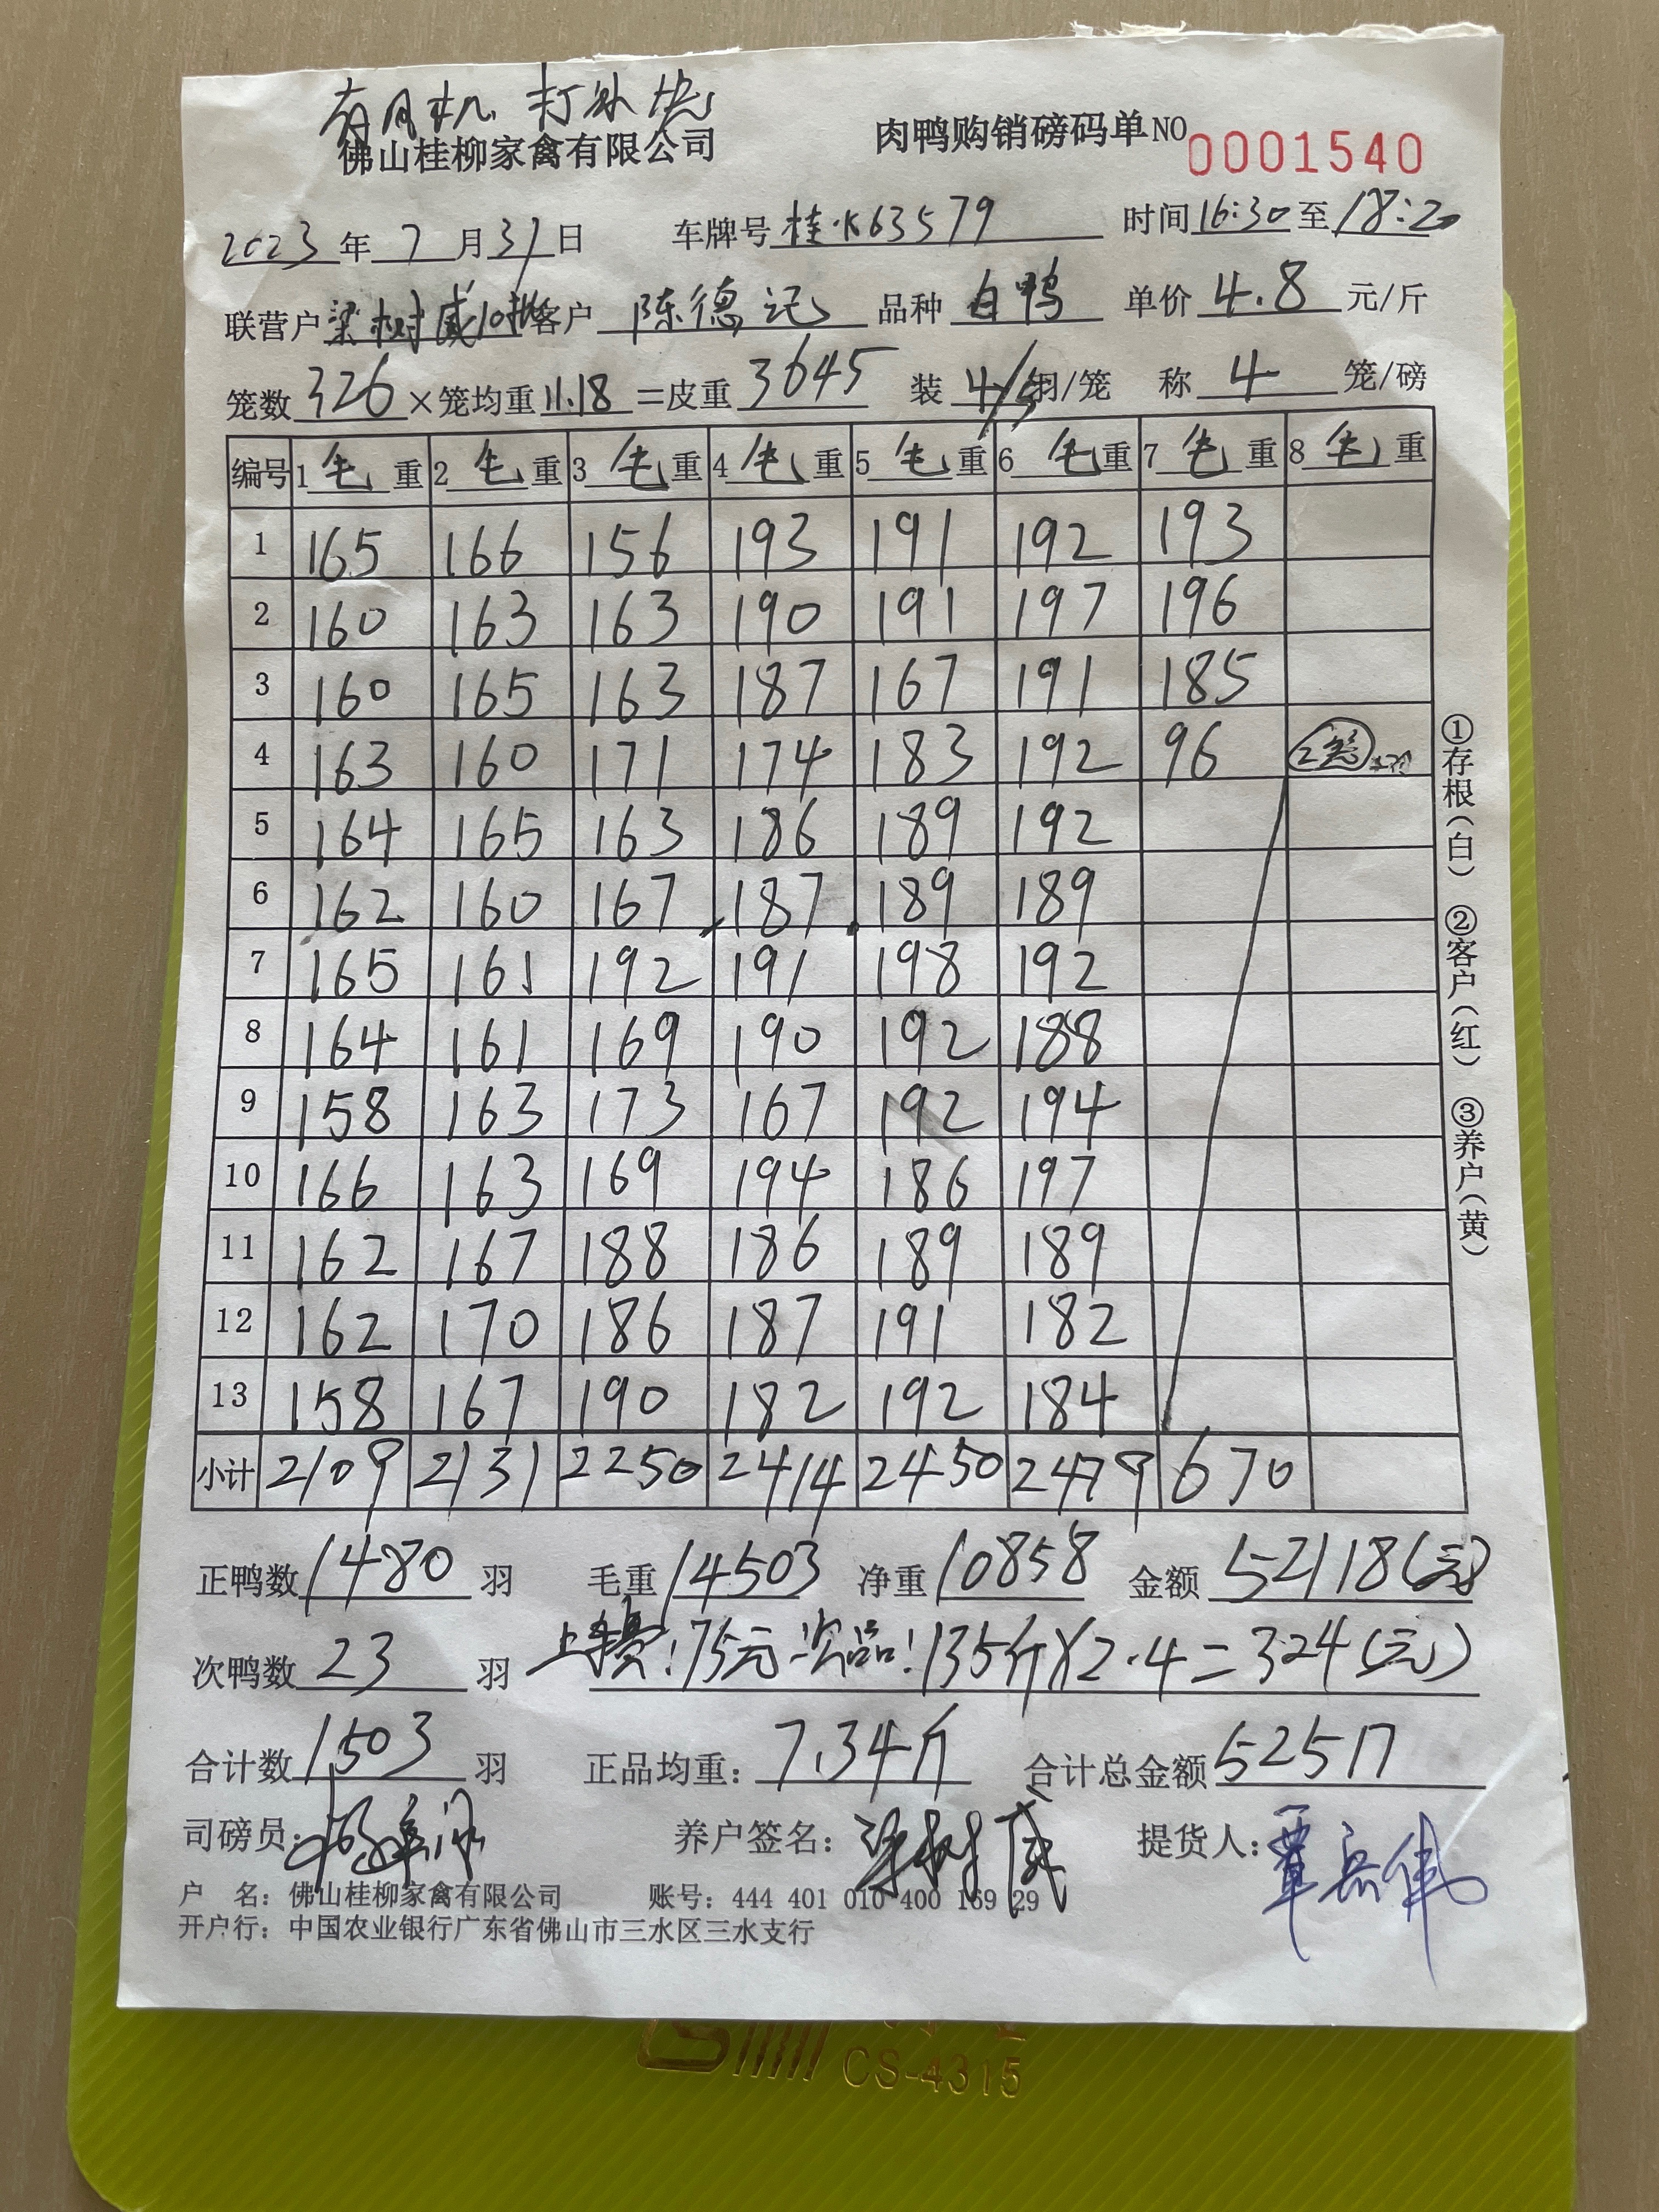 佛山桂柳家禽有限公司 肉鸭购销磅码单 NO 0001540
2023年7月31日 车牌号 桂K63579 时间16:30至18:20
联营户 梁树威10批 客户 陈德记 品种 白鸭 单价 4.8 元/斤
笼数 326 ×笼均重 11.18 =皮重 3645 装 4/5 羽/笼 称 4 笼/磅
编号 1毛重 2毛重 3毛重 4毛重 5毛重 6毛重 7毛重 8毛重
1 165 166 156 193 191 192 193
2 160 163 163 190 191 197 196
3 160 165 163 187 167 191 185
4 163 160 171 174 183 192 96 2笼
5 164 165 163 186 189 192
6 162 160 167 187 189 189
7 165 161 192 191 198 192
8 164 161 169 190 192 188
9 158 163 173 167 192 194
10 166 163 169 194 186 197
11 162 167 188 186 189 189
12 162 170 186 187 191 182
13 158 167 190 182 192 184
小计 2109 2131 2250 2414 2450 2479 670
正鸭数 1480 羽 毛重 14503 净重 10858 金额 52118(元)
次鸭数 23 羽 上车费:75元 次品:135斤×2.4=324(元)
合计数 1503 羽 正品均重: 7.34斤 合计总金额 52517
司磅员: 养户签名: 梁树威 提货人: 覃岳伟
户 名: 佛山桂柳家禽有限公司 账号: 444 401 010 400 169 29
开户行: 中国农业银行广东省佛山市三水区三水支行
①存根(白) ②客户(红) ③养户(黄)
CS-4315